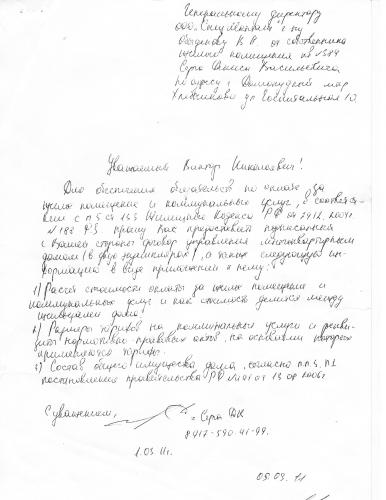 Генеральному директору
ООО
В Н от собственника
жилого помещения кв №384
Серга Дениса Васильевича
по адресу г. Домодедово мкр
ул Госпитальная 10.
Уважаемый Виктор Николаевич!
Для обеспечения обязательств по оплате за
жилое помещение и коммунальных услуг, в соответст-
вии с п 5 ст 155 Жилищного Кодекса РФ от 29.12.2004г.
N 188 ФЗ прошу Вас предоставить подписанный
с Вашей стороны договор управления многоквартирным
домом (в двух экземплярах), а также следующую ин-
формацию в виде приложения к нему:
1) Расчет стоимости оплаты за жилое помещение и
коммунальных услуг и как стоимость делится между
домов.
2) Размеры тарифов на коммунальные услуги и рекви-
зиты нормативно правовых актов, на основании которых
применяются тарифы.
3) Состав общего имущества дома, согласно п.п. 4, п 1
постановление правительства РФ №491 от 13 08 2006г
С уважением, Серга ДВ
8-917-590-41-99.
1.03.11г.
05.03.11